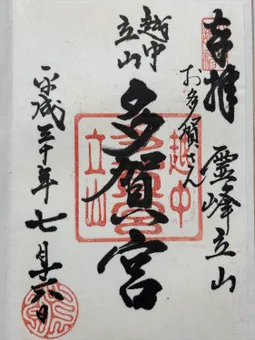 奉拝
霊峰立山
お多賀さん
越中
立山
多賀宮
越中
立山
平成三十年七月